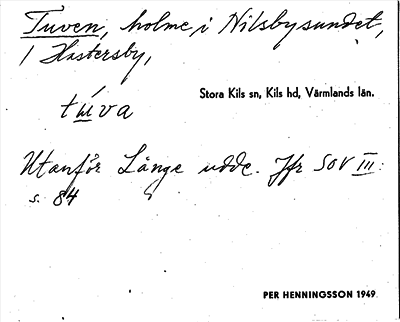 Tuven, holme i Nilsbysundet,
/ Hastersby,
Stora Kils sn, Kils hd, Värmlands län.
tu̲va
Utanför Långe udde. Jfr SOV III:
s. 84
PER HENNINGSSON 1949